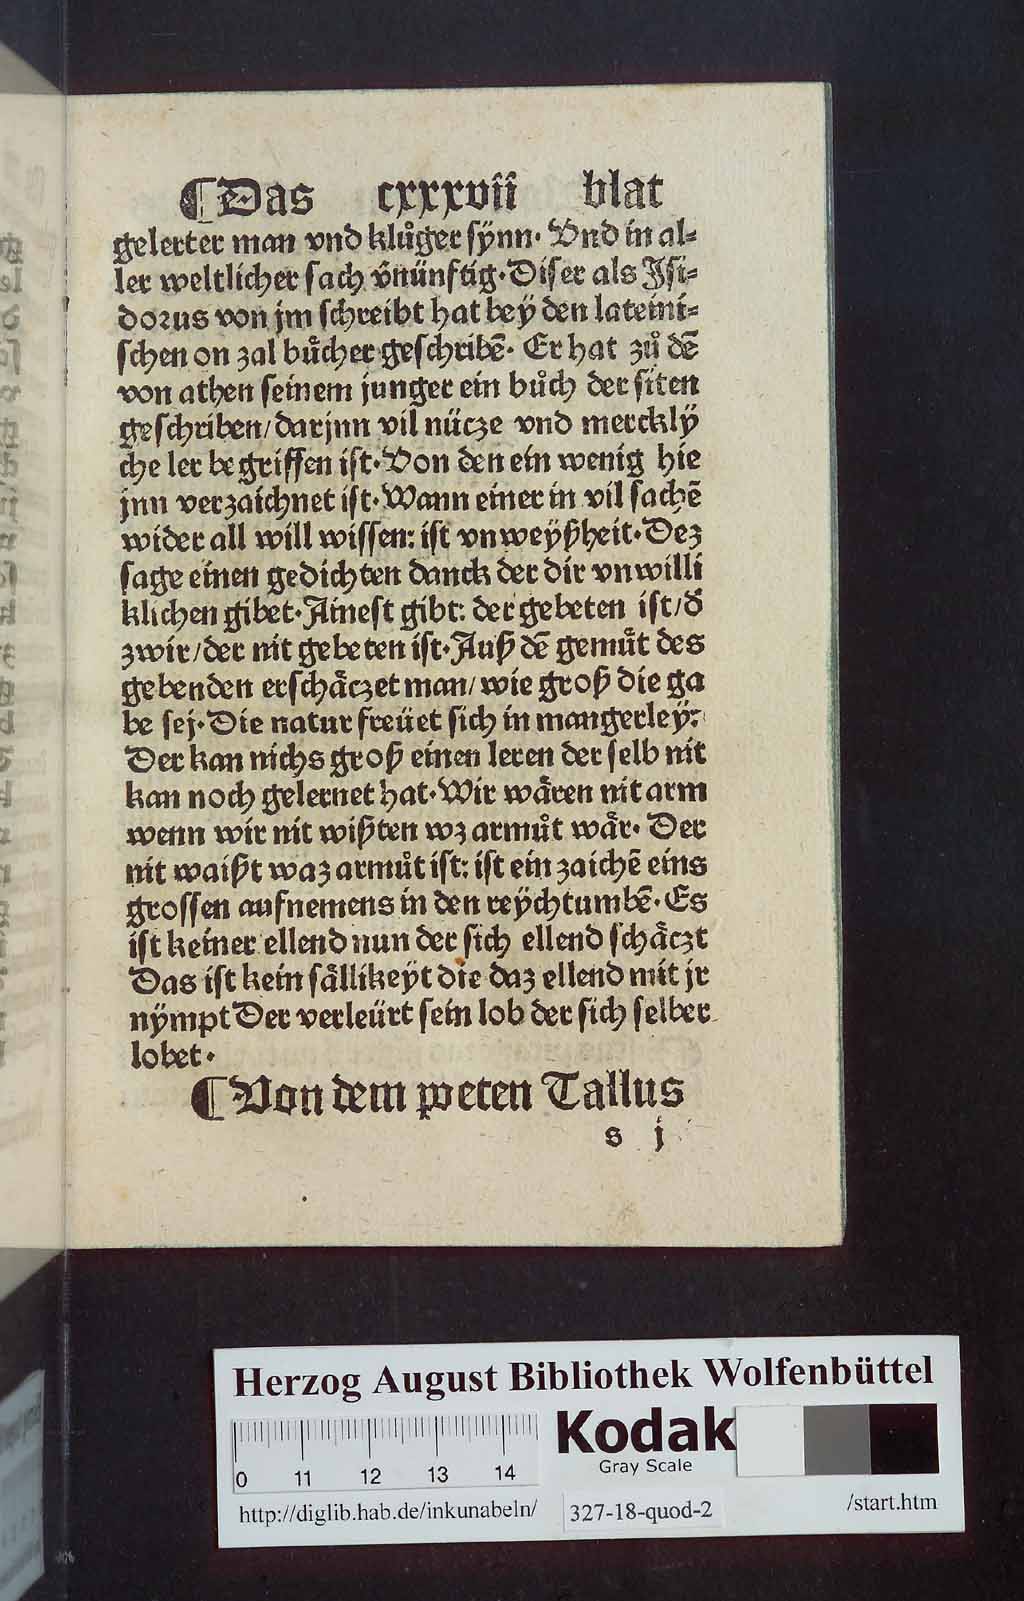 ¶Das cxxxvii blat
gelerter man vnd klůger sÿnn. Vnd in al⸗
ler weltlicher sach v̄nünftig. Diser als Jsi⸗
dorus von jm schreibt hat beÿ den lateini⸗
schen on zal bůcher geschribē. Er hat zů dē
von athen seinem junger ein bůch der siten
geschriben/ darjnn vil nücze vnd mercklÿ
che ler begriffen ist. Von den ein wenig hie
jnn verzaichnet ist. Wann einer in vil sachē
wider all will wissen: ist vnweÿßheit. Dez
sage einen gedichten danck der dir vnwilli
klichen gibet. Ainest gibt: der gebeten ist/ d̕
zwir/ der nit gebeten ist. Auß dē gemůt des
gebenden erschåczet man/ wie groß die ga
be sej. Die natur freüet sich in mangerleÿ.
Der kan nichs groß einen leren der selb nit
kan noch gelernet hat. Wir wåren nit arm
wenn wir nit wißten wz armůt wår. Der
nit waißt waz armůt ist: ist ein zaichē eins
grossen aufnemens in den reÿchtumbē. Es
ist keiner ellend nun der sich ellend schåczt
Das ist kein sållikeÿt die daz ellend mit jr
nÿmpt Der verleürt sein lob der sich selber
lobet.
¶Von dem poeten Tallus
s j
Herzog August Bibliothek Wolfenbüttel
Kodak
Gray Scale
0 11 12 13 14
http://diglib.hab.de/inkunabeln/ 327-18-quod-2 /start.htm